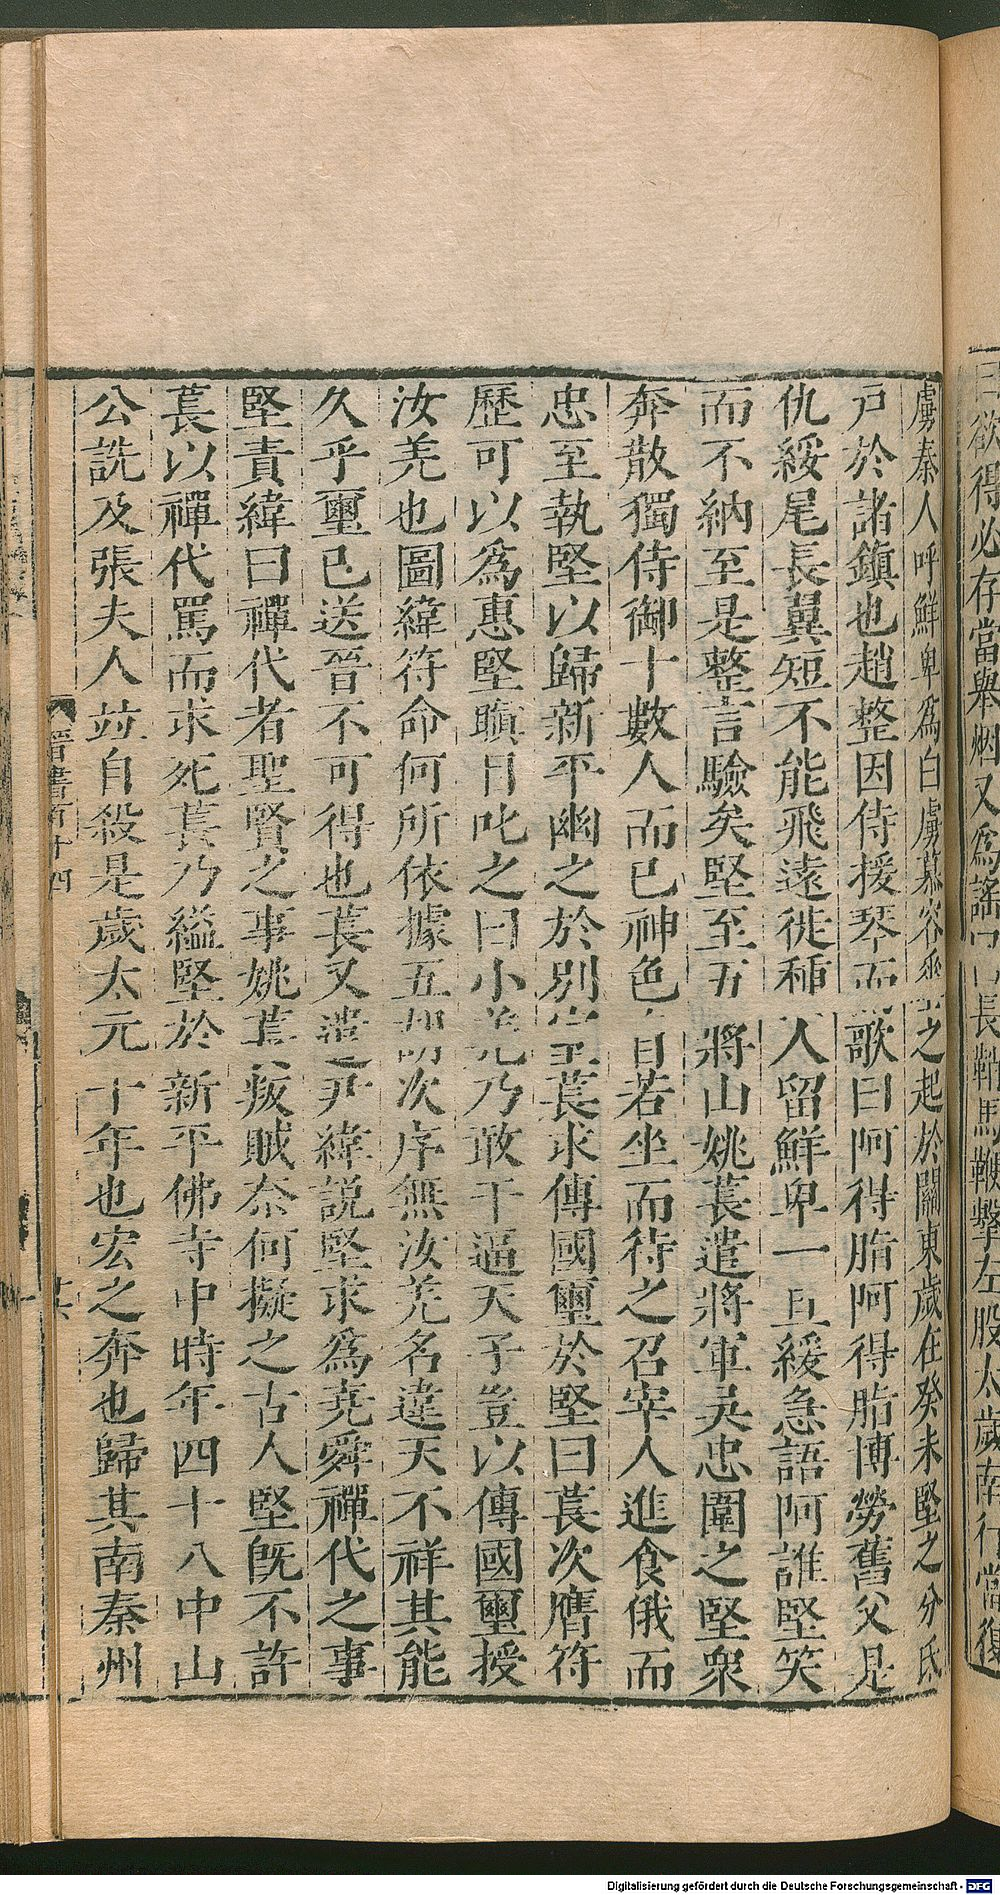 曰欲得必存當舉烟又爲謠曰長鞘馬鞭擊左股太歲南行當復
虜秦人呼鮮卑爲白虜慕容垂之起於關東歲在癸未堅之分氐
戸於諸鎮也趙整因侍援琴而歌曰阿得脂阿得脂博勞舊父是
仇綏尾長翼短不能飛遠徙種人留鮮卑一旦緩急語阿誰堅笑
而不納至是整言驗矣堅至五將山姚萇遣將軍吳忠圍之堅衆
奔散獨侍御十數人而已神色自若坐而待之召宰人進食俄而
忠至執堅以歸新平幽之於別室萇求傳國璽於堅曰萇次膺符
歷可以爲惠堅瞋目叱之曰小羌乃敢干逼天子豈以傳國璽授
汝羌也圖緯符命何所依據五胡次序無汝羌名違天不祥其能
久乎璽已送晉不可得也萇又遣尹緯説堅求爲堯舜禪代之事
堅責緯曰禪代者聖賢之事姚萇叛賊奈何擬之古人堅旣不許
萇以禪代罵而求死萇乃縊堅於新平佛寺中時年四十八中山
公詵及張夫人竝自殺是歲太元十年也宏之奔也歸其南秦州
晉書百十四
Digitalisierung gefördert durch die Deutsche Forschungsgemeinschaft - DFG